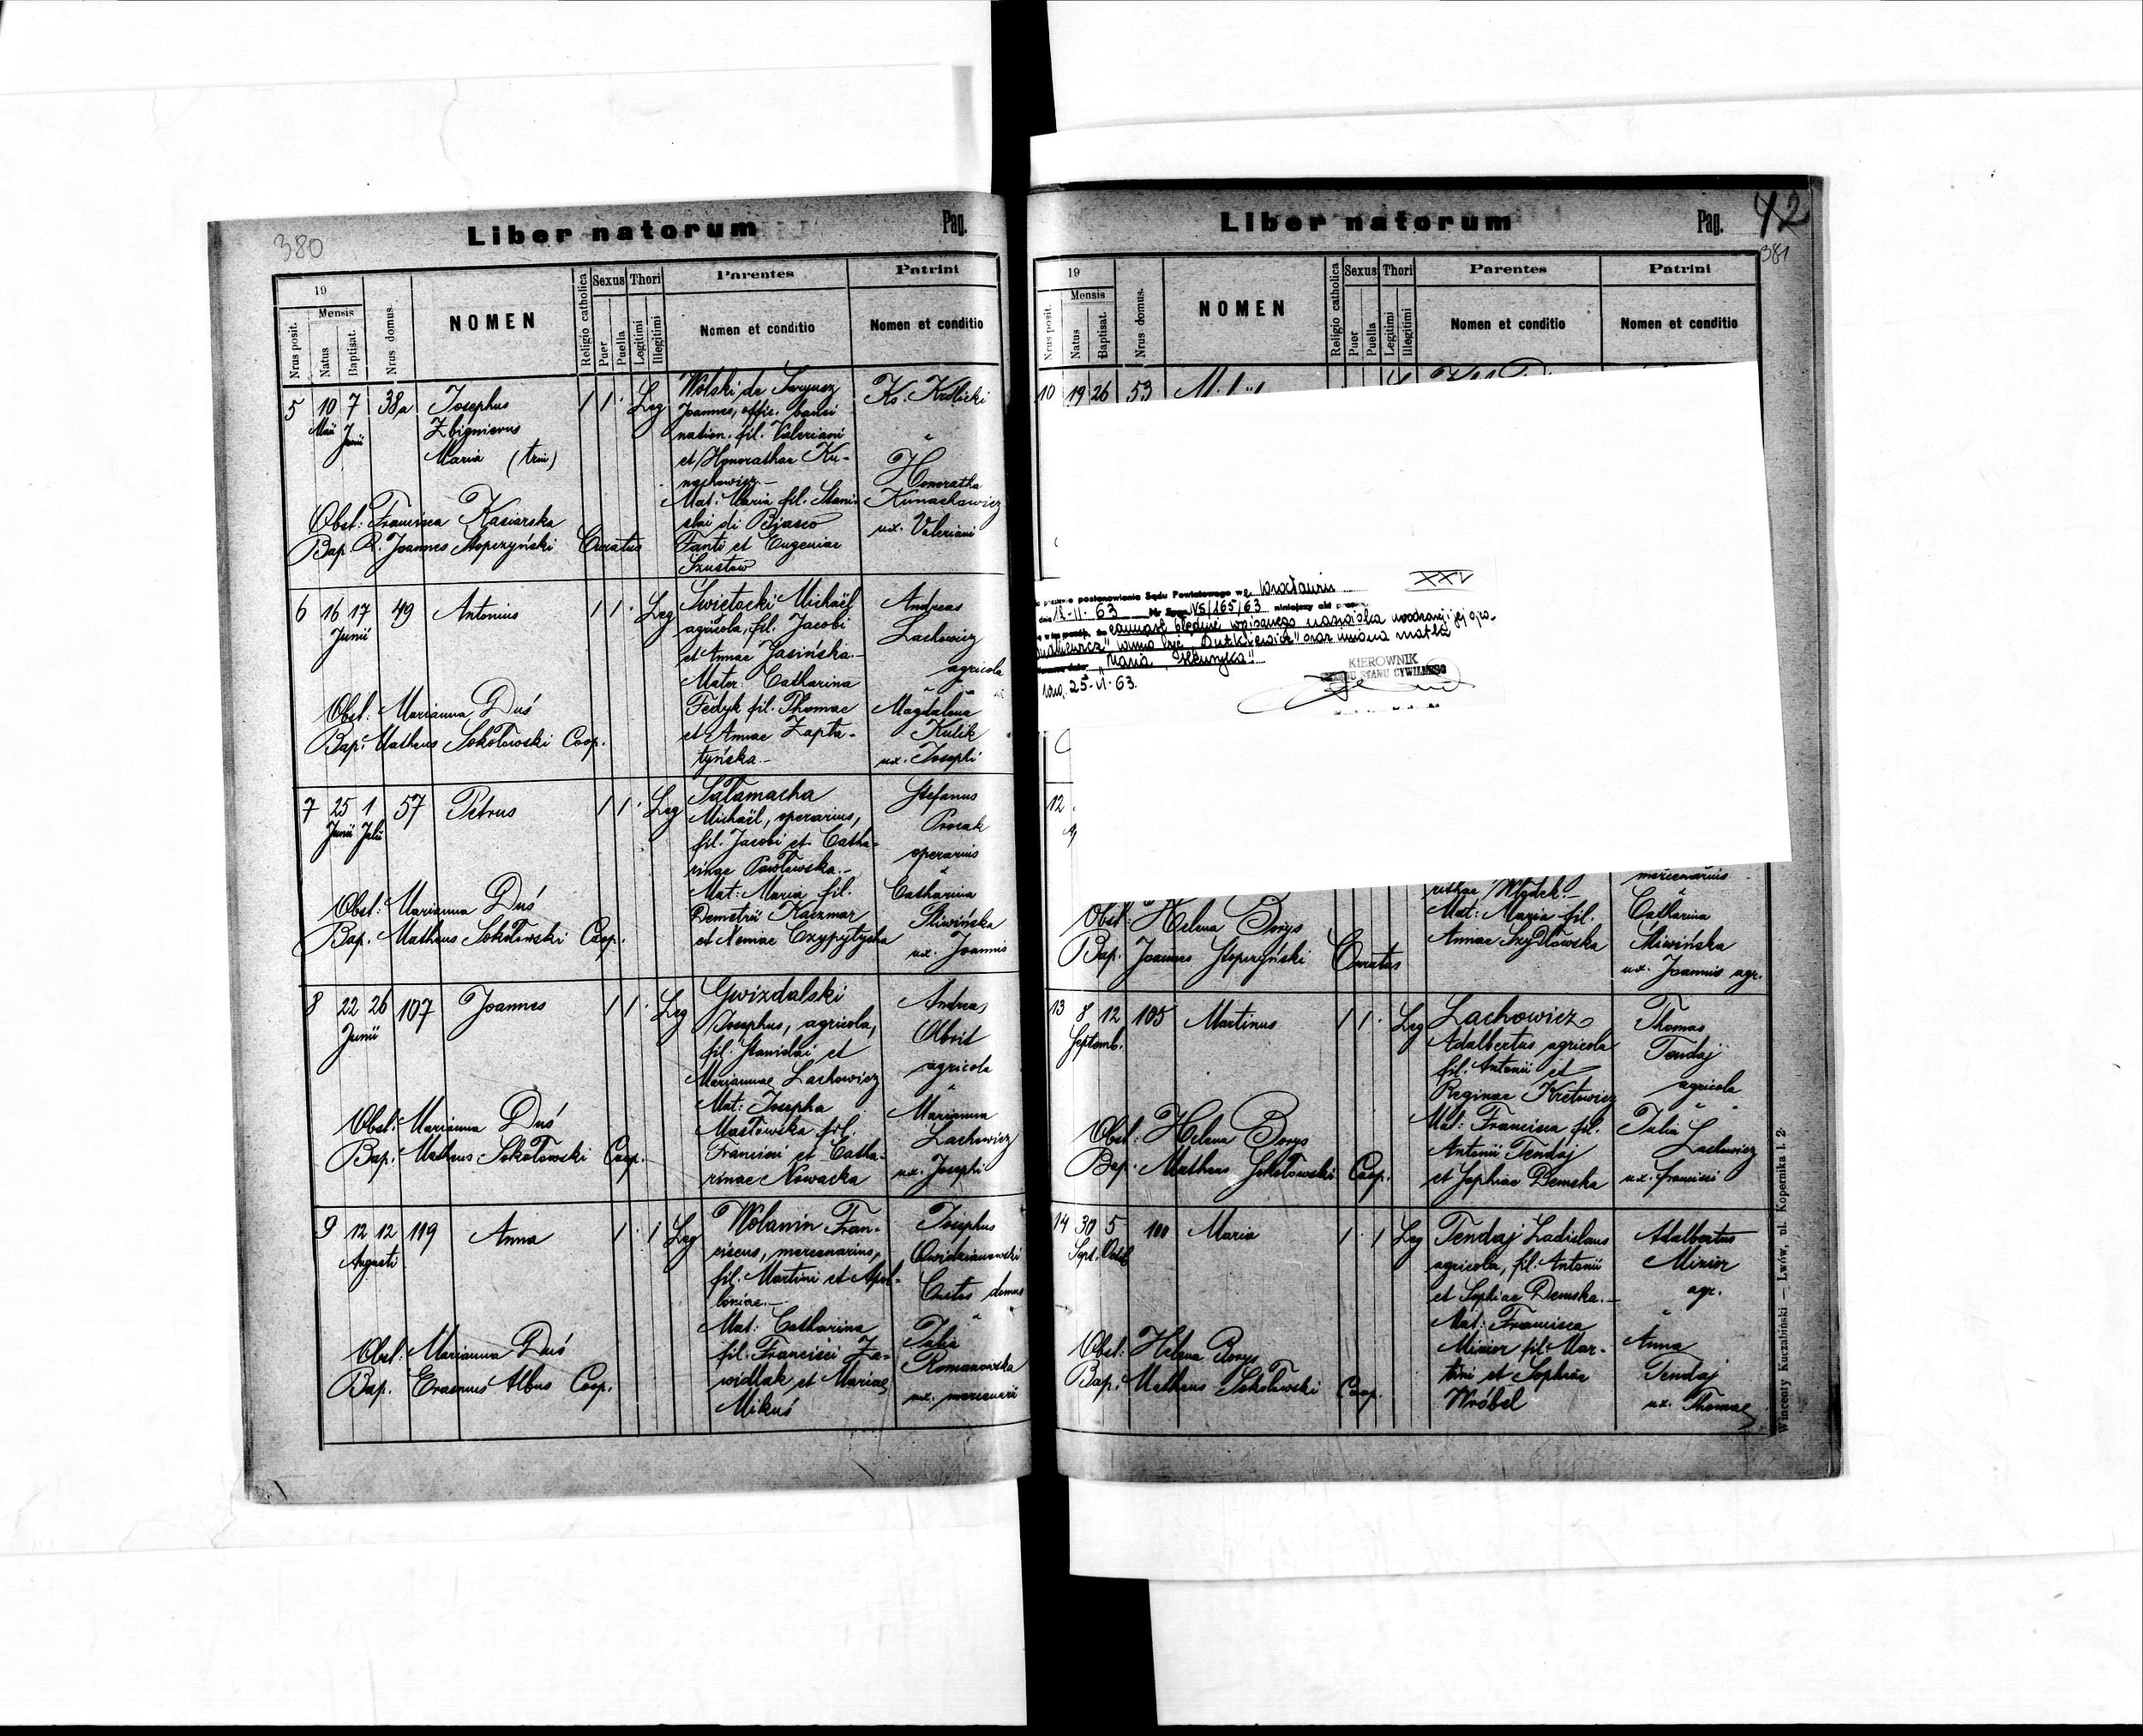 380
Liber natorum
Pag.
19
Mensis
Nrus posit.
Natus
Baptisat.
Nrus domus.
NOMEN
Religio catholica
Sexus
Puer
Puella
Thori
Legitimi
Illegitimi
Parentes
Nomen et conditio
Patrini
Nomen et conditio
5 10 7 38a Josephus 1 1 Leg
Maii Junii
Zbignievus
Maria
Wolski de
Joannes, offic.
nation. fil. Valeriani
et Honorathae Ku-
Mat: Maria fil. Stani-
slai di Biasco
Fanti et Eugeniae
Szustow
Ks. Krolicki
Honoratha
Kunachowicz
ux. Valeriani
Obst: Francisca Kasiarska
Bap. R. Joannes Stopczyński Curatus
6 16 17 49 Antonius 1 1 Leg
Junii
Świetacki Michaël
agricola, fil. Jacobi
et Annae Jasińska.-
Mater: Catharina
Fedyk fil. Thomae
et Annae Zapła-
tyńska.-
Andreas
Lachowicz
agricola
Magdalena
Kulik
ux. Josephi
Obst: Marianna Duś
Bap: Matheus Sokołowski Coop.
7 25 1 57 Petrus 1 1 Leg
Junii Julii
Sałamacha
Michaël, operarius,
fil. Jacobi et Catha-
rinae Pawłowska.-
Mat: Maria fil.
Demetrii Kaczmar
et Neniae
Stefanus
operarius
Catharina
Śliwińska
ux. Joannis
Obst: Marianna Duś
Bap. Matheus Sokołowski Coop.
8 22 26 107 Joannes 1 1 Leg
Junii
Gwizdalski
Josephus, agricola,
fil. Stanislai et
Mariannae Lachowicz
Mat: Josepha
Masłowska fil.
Francisci et Catha-
rinae Nowacka
Andreas
agricola
Marianna
Lachowicz
ux. Josephi
Obst: Marianna Duś
Bap. Matheus Sokołowski Coop.
9 12 12 119 Anna 1 1 Leg
Augusti
Wolanin Fran-
ciscus, mercenarius,
fil. Martini et Apol-
loniae.-
Mat: Catharina
fil. Francisci Za-
widlak et Mariae
Mikuś
Josephus
Custos domus
Julia
Romanowska
ux. mercenarii
Obst: Marianna Duś
Bap. Erasmus Albus Coop.
42
381
Liber natorum
Pag.
19
Mensis
Nrus posit.
Natus
Baptisat.
Nrus domus.
NOMEN
Religio catholica
Sexus
Puer
Puella
Thori
Legitimi
Illegitimi
Parentes
Nomen et conditio
Patrini
Nomen et conditio
10 19 26 53
postanowienia Sądu Powiatowego we Wrocławiu
XXV
dnia 12-11-63 Nr VS/165/63 niniejszy akt
zamiast błędnie wpisanego nazwiska
winno być "Dutkiewicz" oraz imiona matki
"Maria Henryka".
25-VI-63.
KIEROWNIK
URZĘDU STANU CYWILNEGO
12
mercenarius
Mat: Maria fil.
Annae Szydłowska
Catharina
Śliwińska
ux. Joannis agr.
Obst: Helena Borys
Bap. Joannes Stopczyński Curatus
13 8 12 105 Martinus 1 1 Leg
Septemb.
Lachowicz
Adalbertus agricola
fil. Antonii et
Reginae Kretowicz
Mat: Francisca fil.
Antonii Tendaj
et Sophiae Demska
Thomas
Tendaj
agricola
Julia
Lachowicz
ux. Francisci
Obst: Helena Borys
Bap. Matheus Sokołowski Coop.
14 30 5 100 Maria 1 1 Leg
Sept. Octob
Tendaj Ladislaus
agricola, fil. Antonii
et Sophiae Demska.-
Mat: Francisca
Misior fil. Mar-
tini et Sophiae
Wróbel
Adalbertus
Misior
agr.
Anna
Tendaj
ux. Thomae
Obst: Helena Borys
Bap: Matheus Sokołowski Coop.
Wincenty Kuczabiński — Lwów, ul. Kopernika l. 2